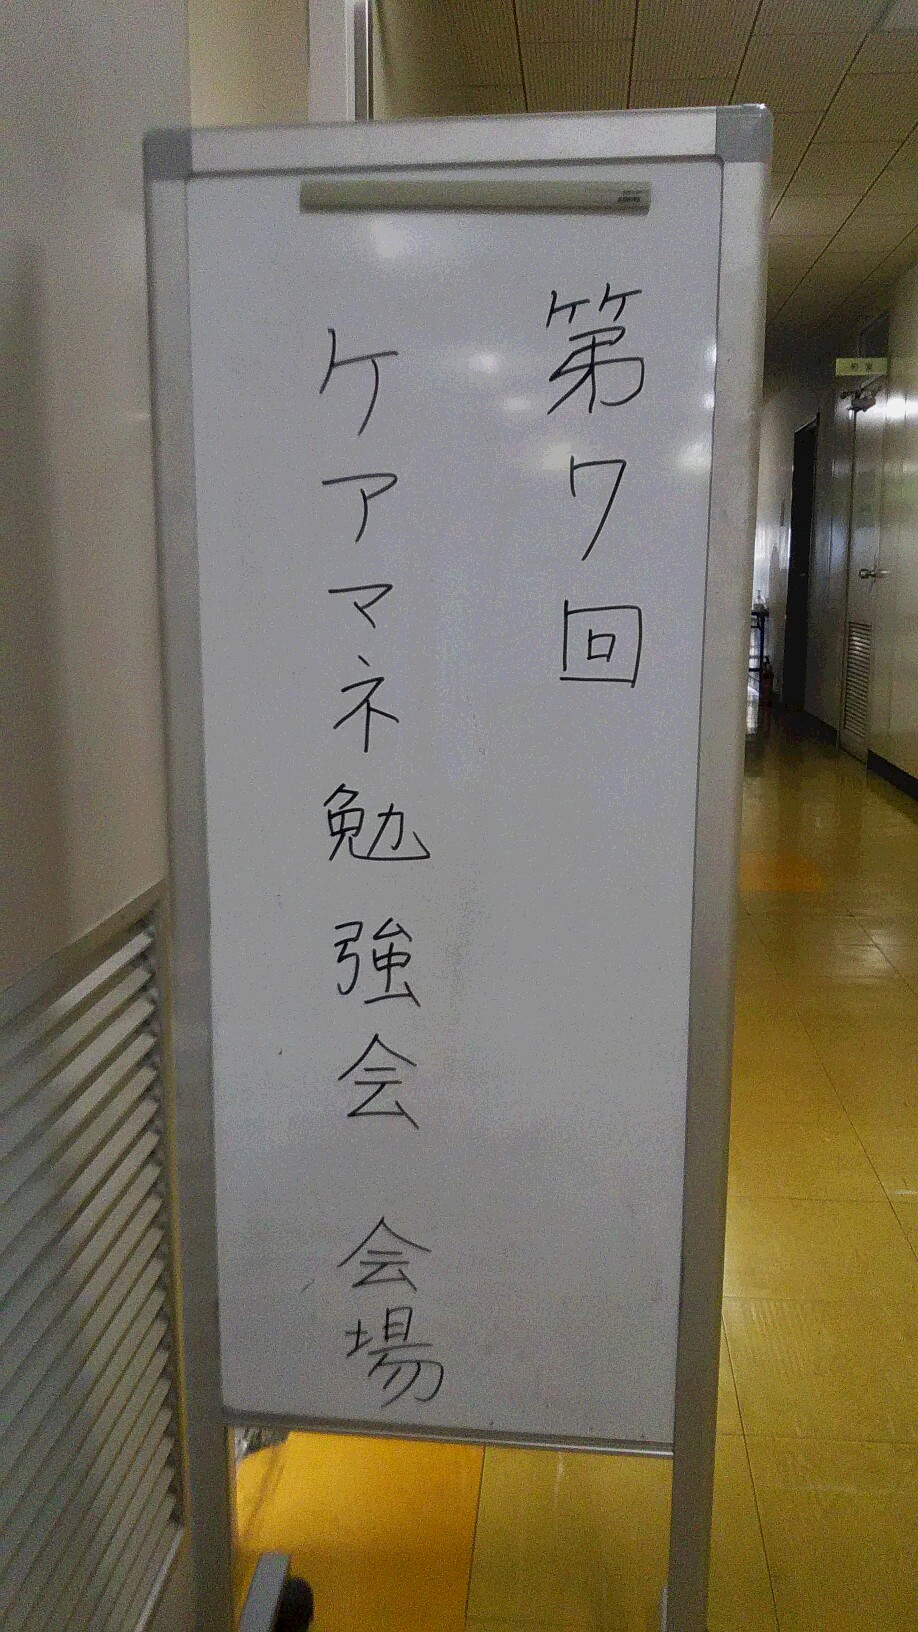 第7回
ケアマネ勉強会 会場